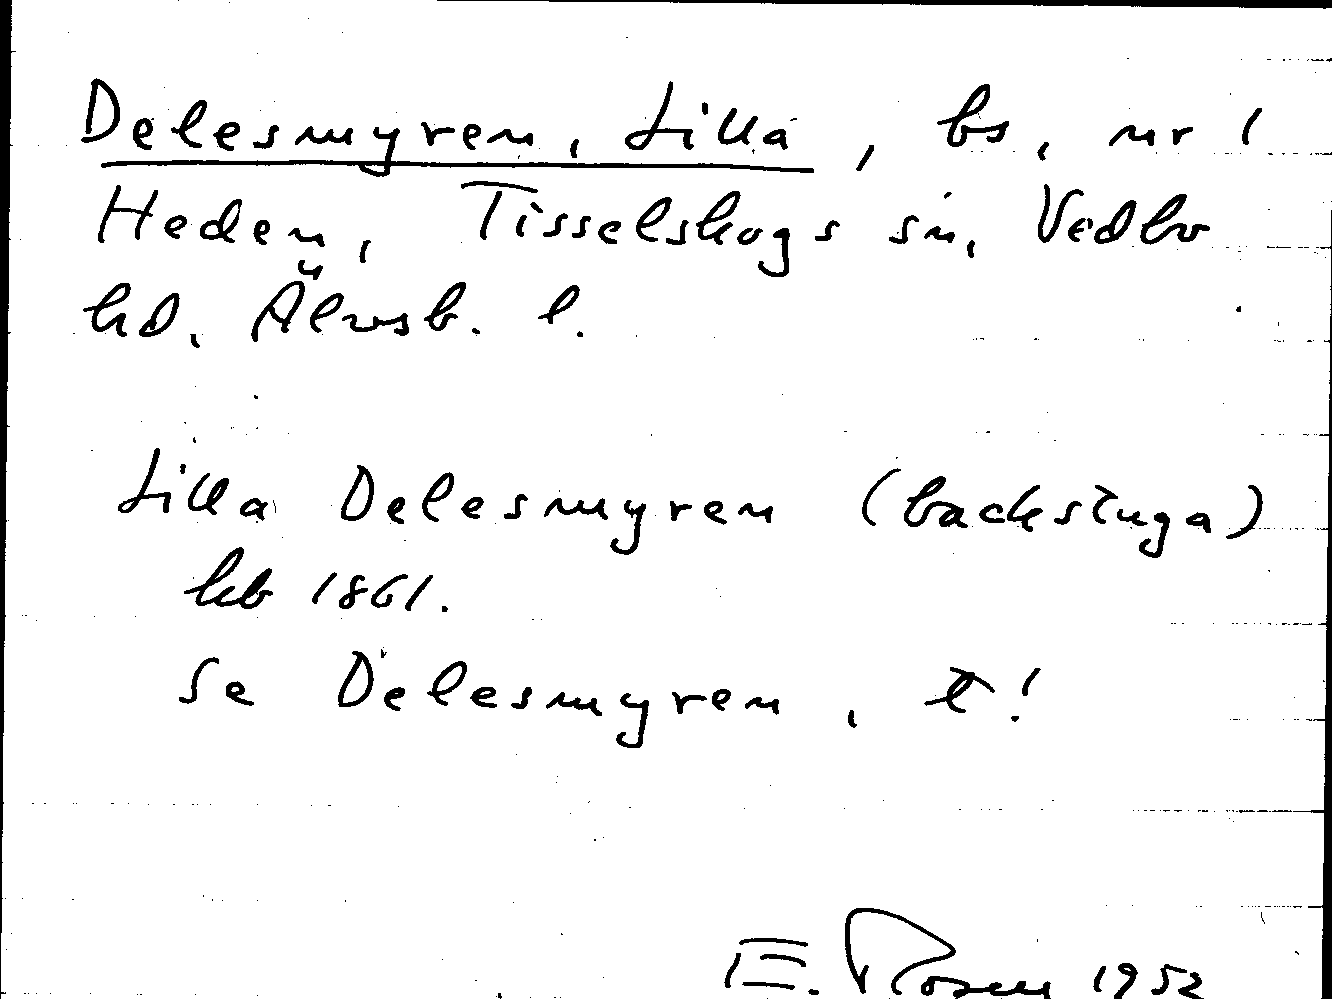 Delesmyren, Lilla, bs, nr 1
Heden, Tisselskogs sn, Vedbo
hd, Älvsb. l.
Lilla Delesmyren (backstuga)
hfb 1861.
Se Delesmyren, t!
E. Rosen 1952